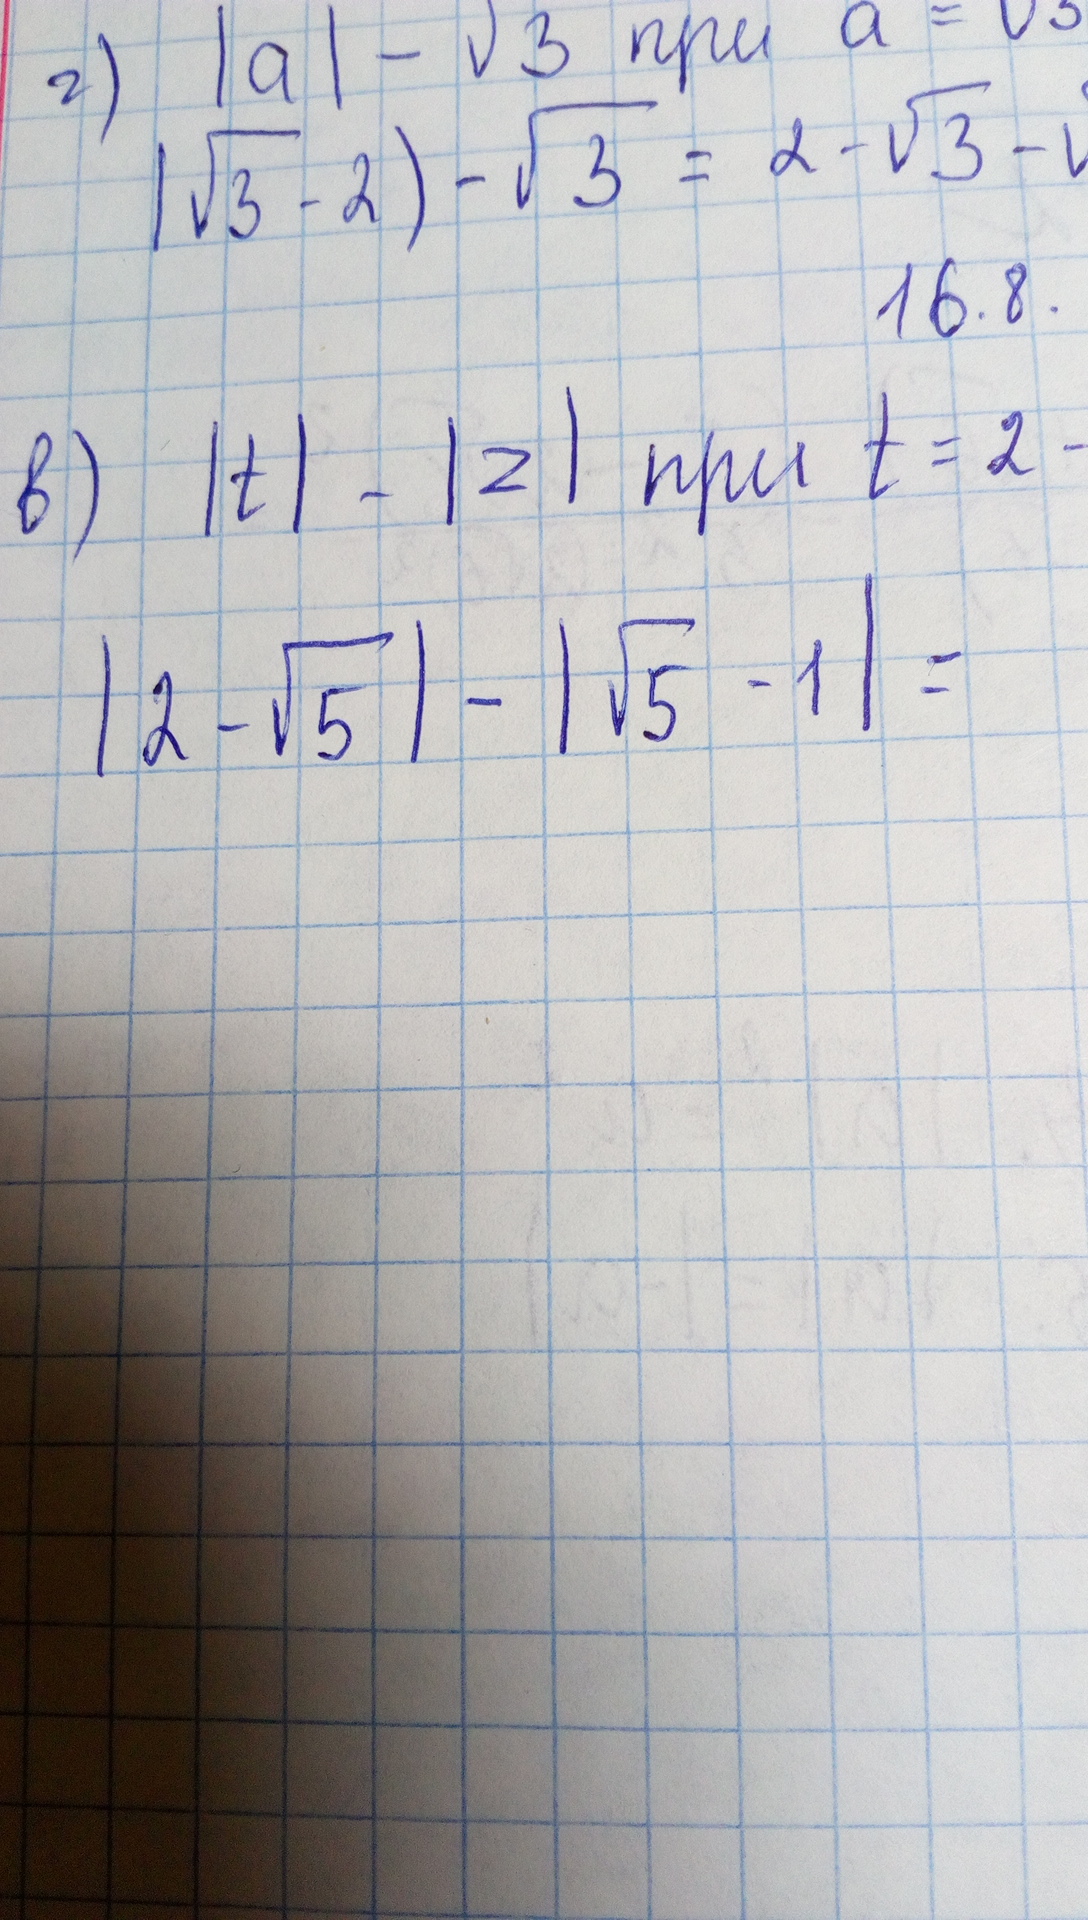 г) |a| - √3 при a = √3
|√3 - 2) - √3 = 2 - √3 - √
16.8.
в) |t| - |z| при t = 2 -
|2 - √5| - |√5 - 1| =